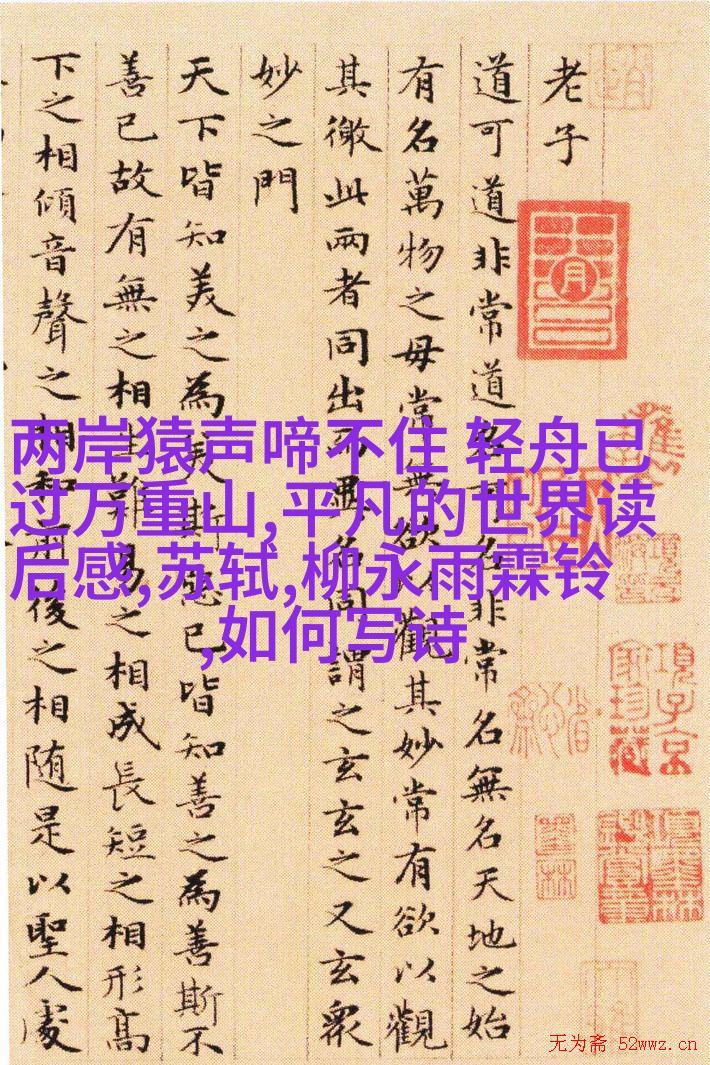 老子
道可道非常道名可名非常名無名天地之始
有名萬物之母常無欲以觀其妙常有欲以觀
其徼此兩者同出而異名同謂之玄玄之又玄衆
妙之門
天下皆知美之為美斯惡已皆知善之為善斯不
善已故有無之相生難易之相成長短之相形高
下之相傾音聲之相和前後之相随是以聖人處
两岸猿声啼不住 轻舟已
过万重山,平凡的世界读
后感,苏轼,柳永雨霖铃
,如何写诗
无为斋 52wwz.cn